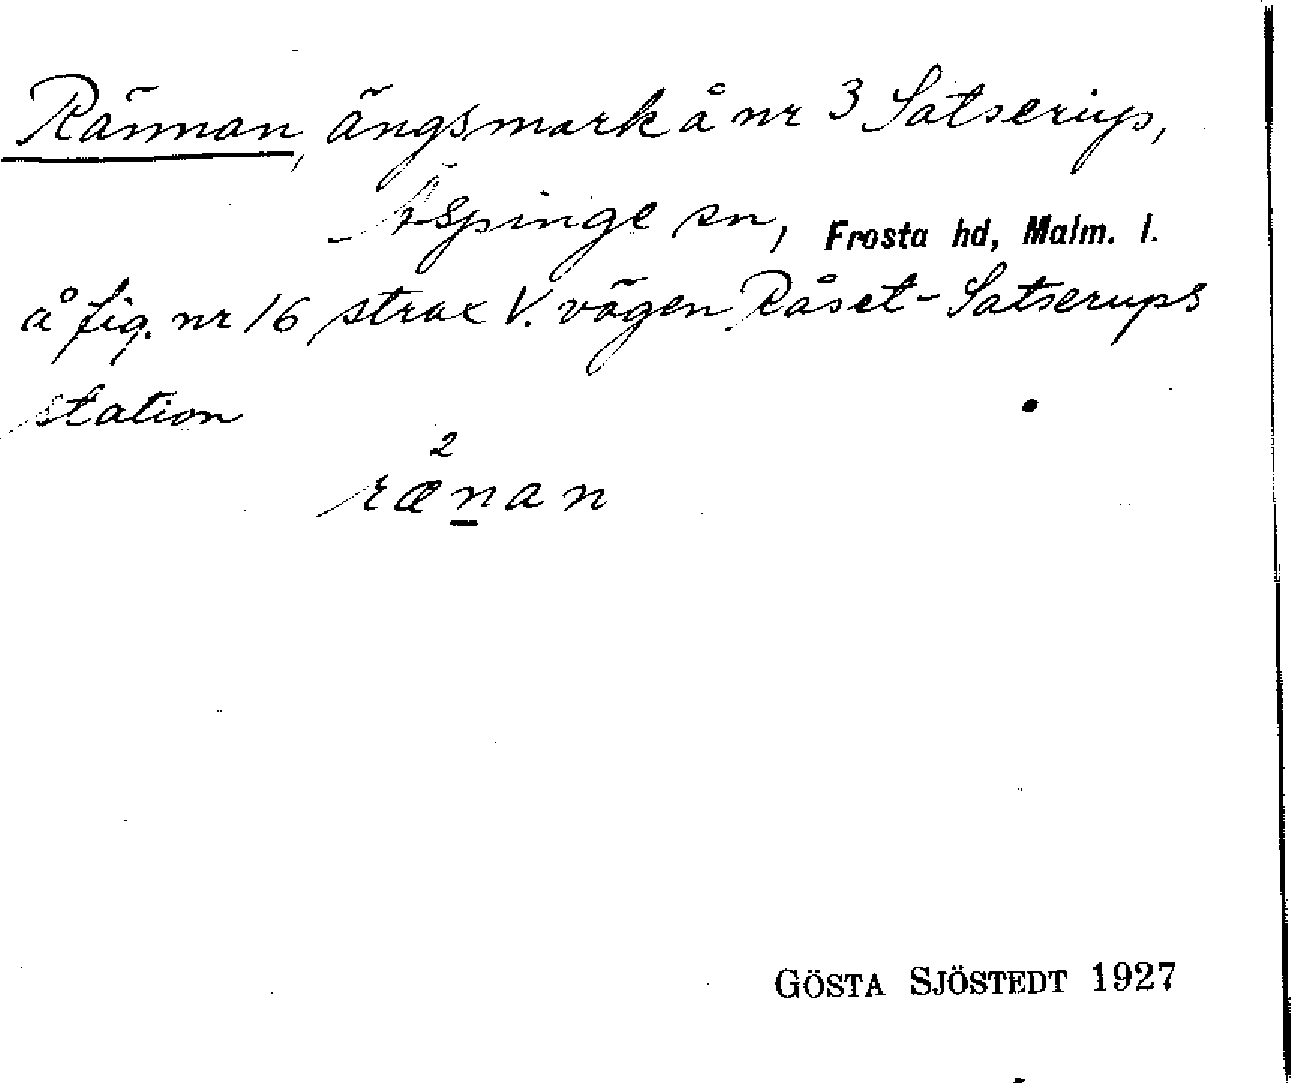 Rännan, ängsmark å nr 3 Satserup,
Äspinge sn, Frosta hd, Malm. l.
å fig. nr 16 strax V. vägen Råset-Satserups
station
2
rænan
GÖSTA SJÖSTEDT 1927